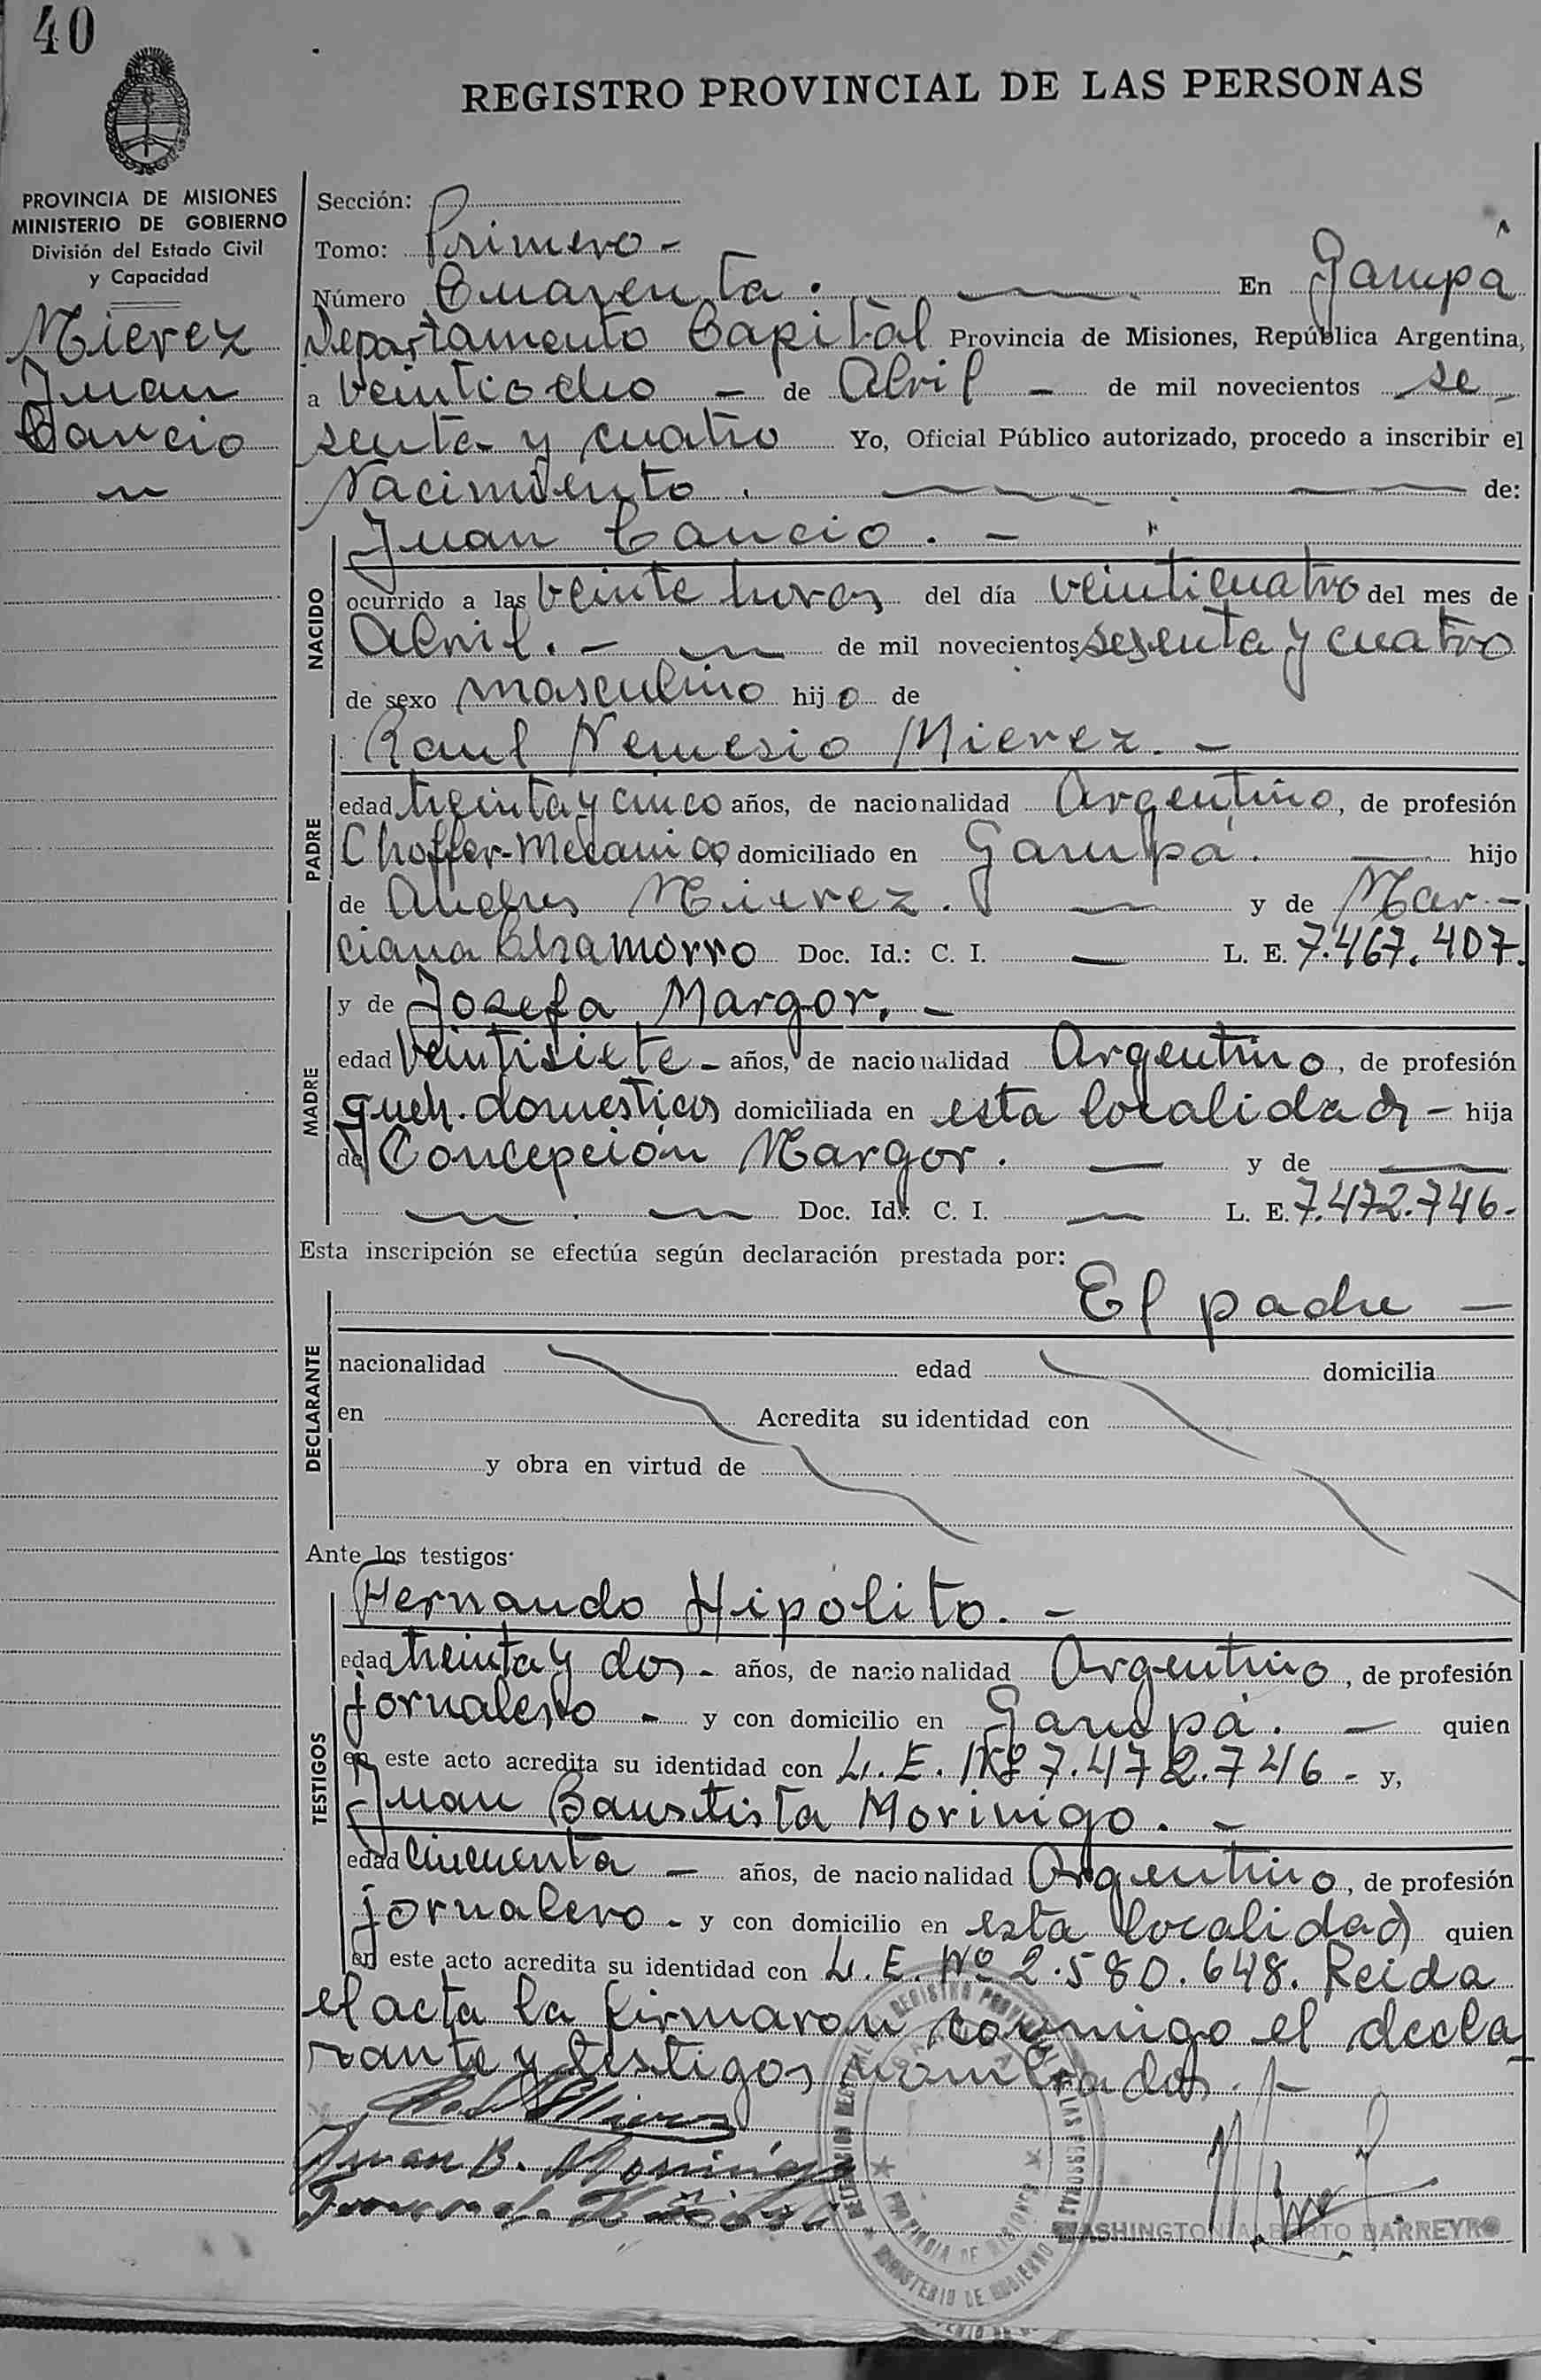 40
REGISTRO PROVINCIAL DE LAS PERSONAS
PROVINCIA DE MISIONES
MINISTERIO DE GOBIERNO
División del Estado Civil
y Capacidad
Mierez
Juan
Cancio
Sección:
Tomo: Primero -
Número Cuarenta. En Garupá
Departamento Capital Provincia de Misiones, República Argentina,
a veintiocho - de Abril - de mil novecientos se
senta y cuatro Yo, Oficial Público autorizado, procedo a inscribir el
Nacimiento. de:
Juan Cancio. -
NACIDO
ocurrido a las veinte horas del día veinticuatro del mes de
Abril. - de mil novecientos sesenta y cuatro
de sexo masculino hijo de
PADRE
Raul Nemesio Mierez. -
edad treinta y cinco años, de nacionalidad Argentino, de profesión
Choffer-Mecanico domiciliado en Garupá. hijo
de Andres Mierez. y de Mar-
ciana Chamorro Doc. Id.: C. I. — L. E. 7.467.407.
MADRE
y de Josefa Margor. -
edad veintisiete - años, de nacionalidad Argentino, de profesión
queh. domesticos domiciliada en esta localidad - hija
de Concepción Margor. — y de —
Doc. Id.: C. I. — L. E. 7.472.746-
Esta inscripción se efectúa según declaración prestada por:
DECLARANTE
El padre —
nacionalidad edad domicilia
en Acredita su identidad con
y obra en virtud de
Ante los testigos:
TESTIGOS
Fernando Hipólito. -
edad treinta y dos - años, de nacionalidad Argentino, de profesión
jornalero - y con domicilio en Garupá. — quien
en este acto acredita su identidad con L. E. Nº 7.472.746 - y,
Juan Bautista Morinigo. -
edad cincuenta - años, de nacionalidad Argentino, de profesión
jornalero - y con domicilio en esta localidad quien
en este acto acredita su identidad con L. E. Nº 2.580.648. Leida
el acta la firmaron conmigo el decla
rante y testigos nombrados. -
Juan B. Morinigo
WASHINGTON ALBERTO BARREYRO
PROVINCIA DE MISIONES
MINISTERIO DE GOBIERNO